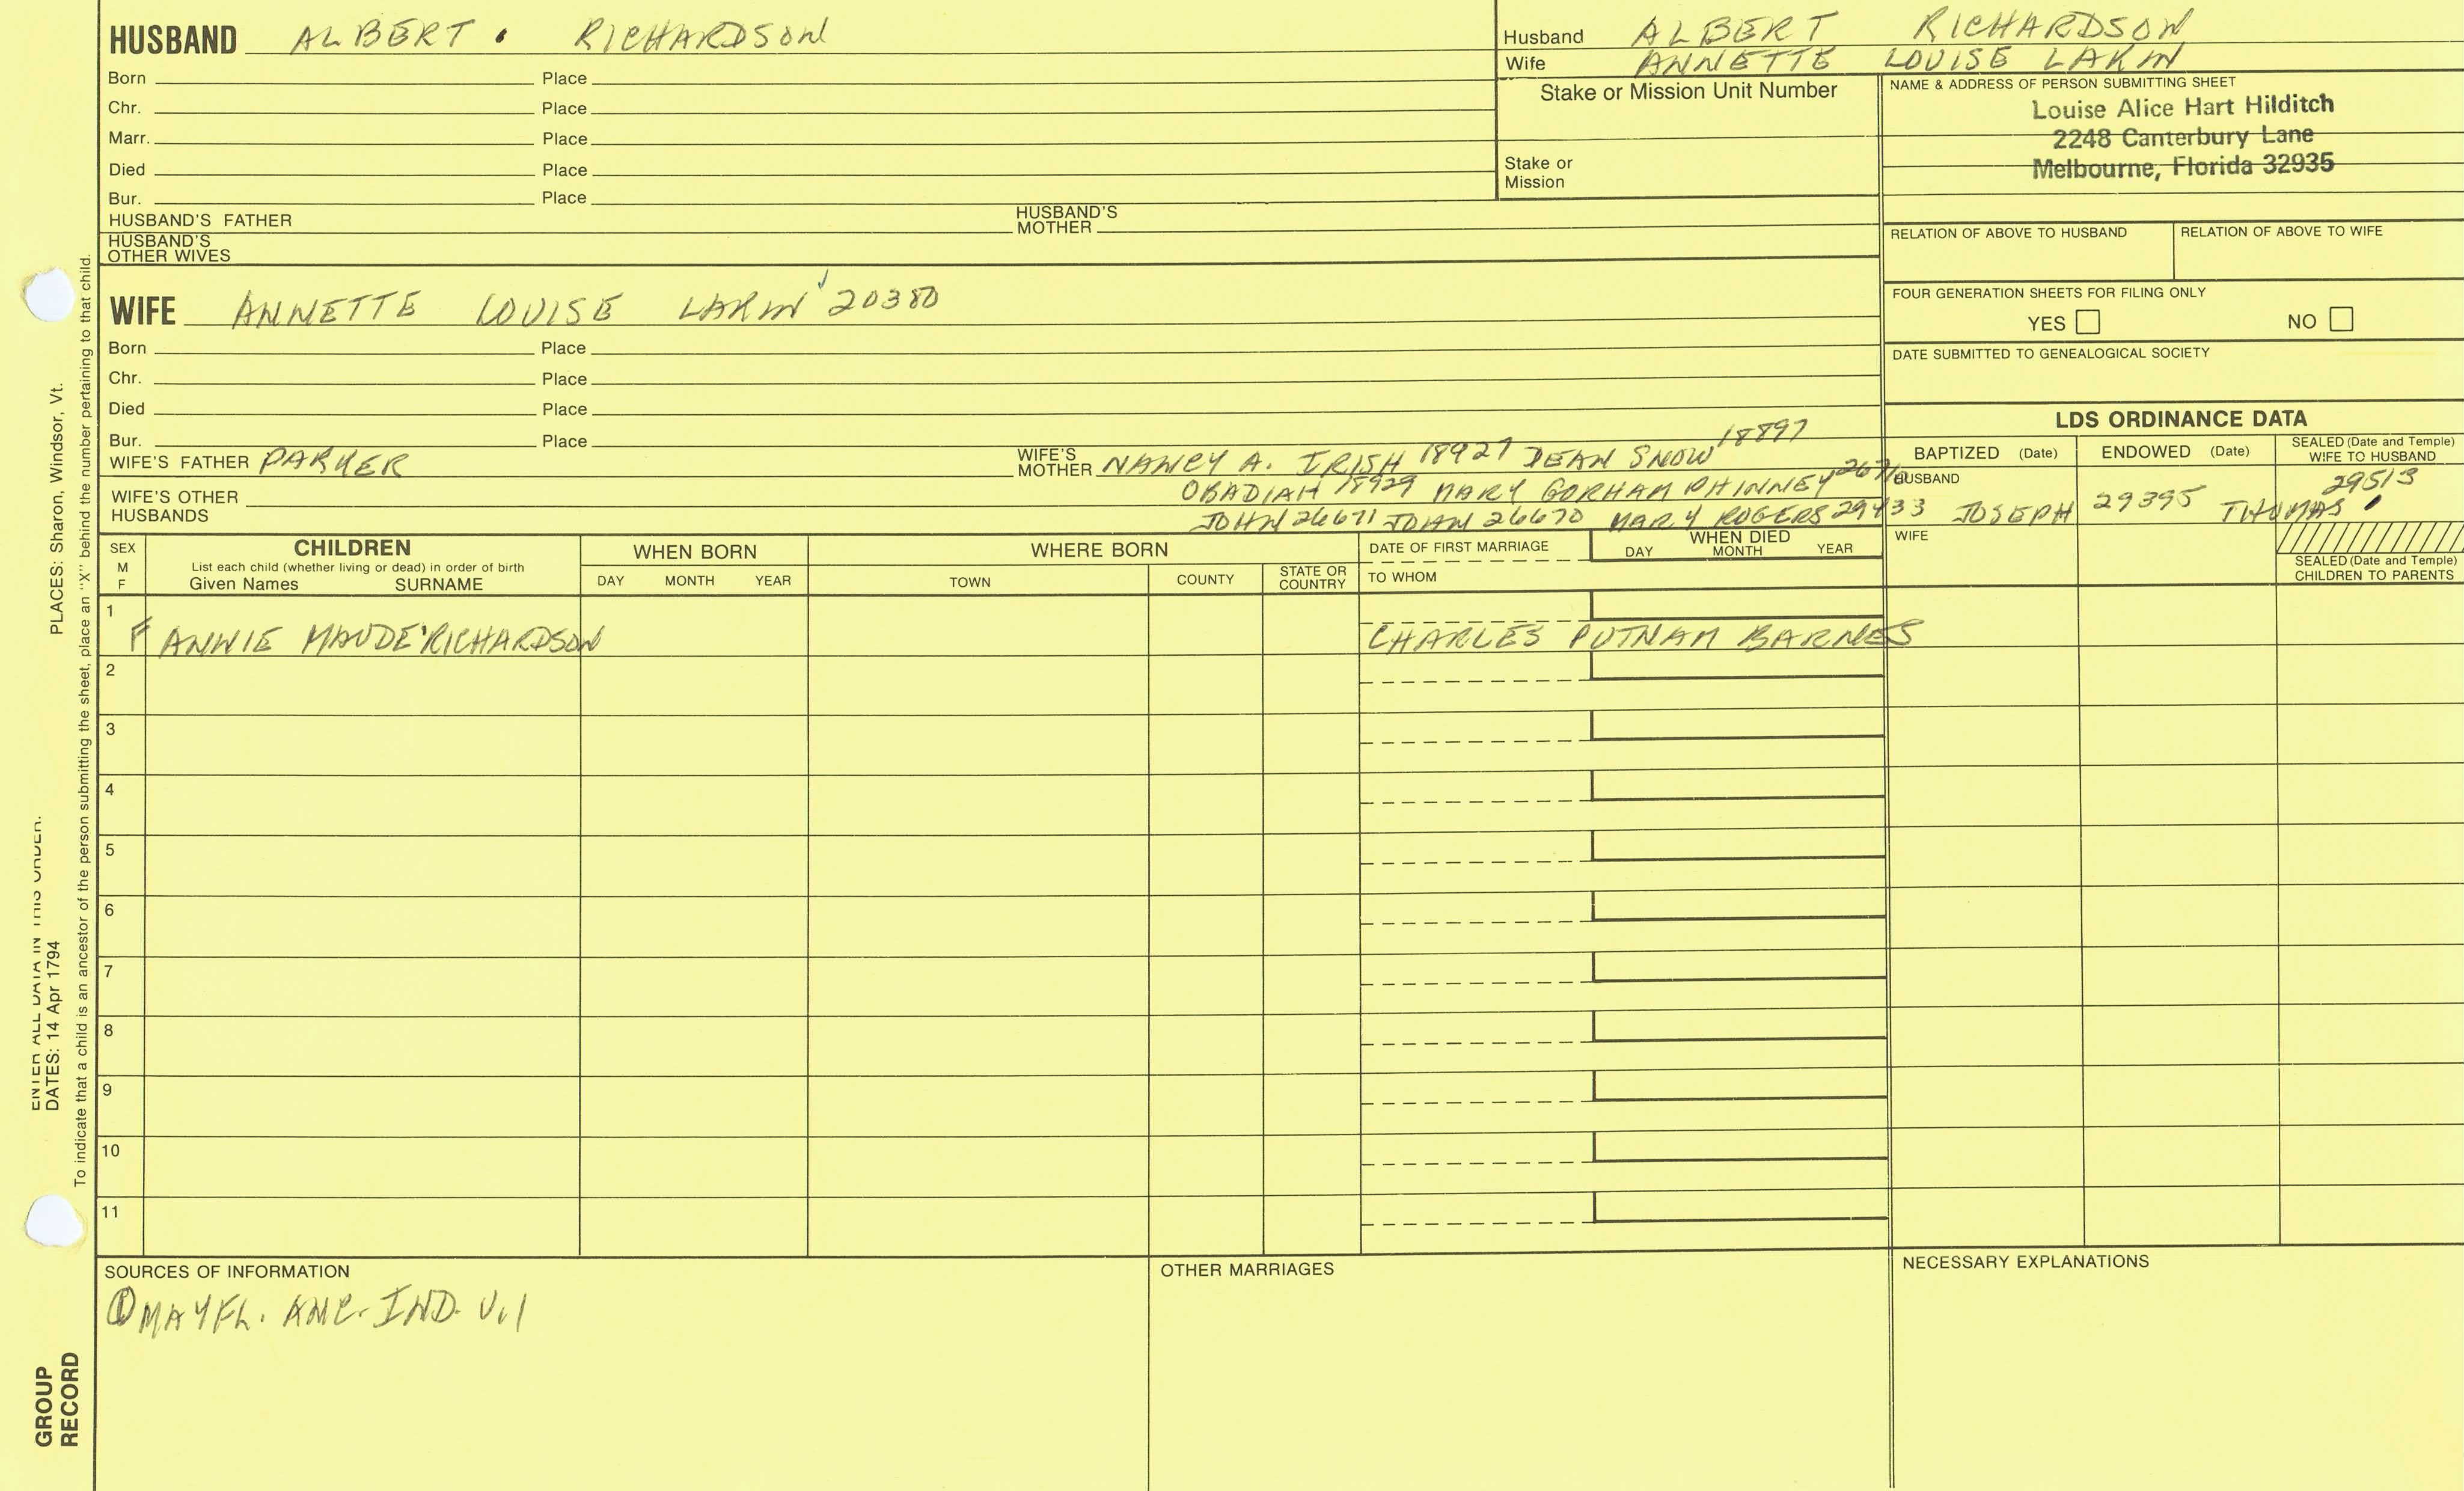 HUSBAND ALBERT · RICHARDSON
Born Place
Chr. Place
Marr. Place
Died Place
Bur. Place
HUSBAND'S FATHER HUSBAND'S MOTHER
HUSBAND'S OTHER WIVES
Husband ALBERT RICHARDSON
Wife ANNETTE LOUISE LAKIN
Stake or Mission Unit Number
Stake or Mission
NAME & ADDRESS OF PERSON SUBMITTING SHEET
Louise Alice Hart Hilditch
2248 Canterbury Lane
Melbourne, Florida 32935
RELATION OF ABOVE TO HUSBAND RELATION OF ABOVE TO WIFE
FOUR GENERATION SHEETS FOR FILING ONLY
YES NO
DATE SUBMITTED TO GENEALOGICAL SOCIETY
WIFE ANNETTE LOUISE LAKIN 20380
Born Place
Chr. Place
Died Place
Bur. Place
WIFE'S FATHER PARKER WIFE'S MOTHER NANCY A. IRISH 18927 DEAN SNOW 18897
OBADIAH 18929 MARY GORHAM PHINNEY
WIFE'S OTHER HUSBANDS
JOHN 26671 JOHN 26670 MARY ROGERS 29433 JOSEPH 29395 THOMAS 29513
LDS ORDINANCE DATA
BAPTIZED (Date) ENDOWED (Date) SEALED (Date and Temple) WIFE TO HUSBAND
HUSBAND
WIFE
SEALED (Date and Temple) CHILDREN TO PARENTS
SEX M F
CHILDREN
List each child (whether living or dead) in order of birth
Given Names SURNAME
WHEN BORN
DAY MONTH YEAR
WHERE BORN
TOWN COUNTY STATE OR COUNTRY
DATE OF FIRST MARRIAGE
TO WHOM
WHEN DIED
DAY MONTH YEAR
1
F ANNIE MAUDE RICHARDSON CHARLES PUTNAM BARNES
2
3
4
5
6
7
8
9
10
11
SOURCES OF INFORMATION
① MAYFL. ANC. IND. V.1
OTHER MARRIAGES
NECESSARY EXPLANATIONS
ENTER ALL DATA IN THIS ORDER.
DATES: 14 Apr 1794 PLACES: Sharon, Windsor, Vt.
To indicate that a child is an ancestor of the person submitting the sheet, place an "X" behind the number pertaining to that child.
GROUP
RECORD